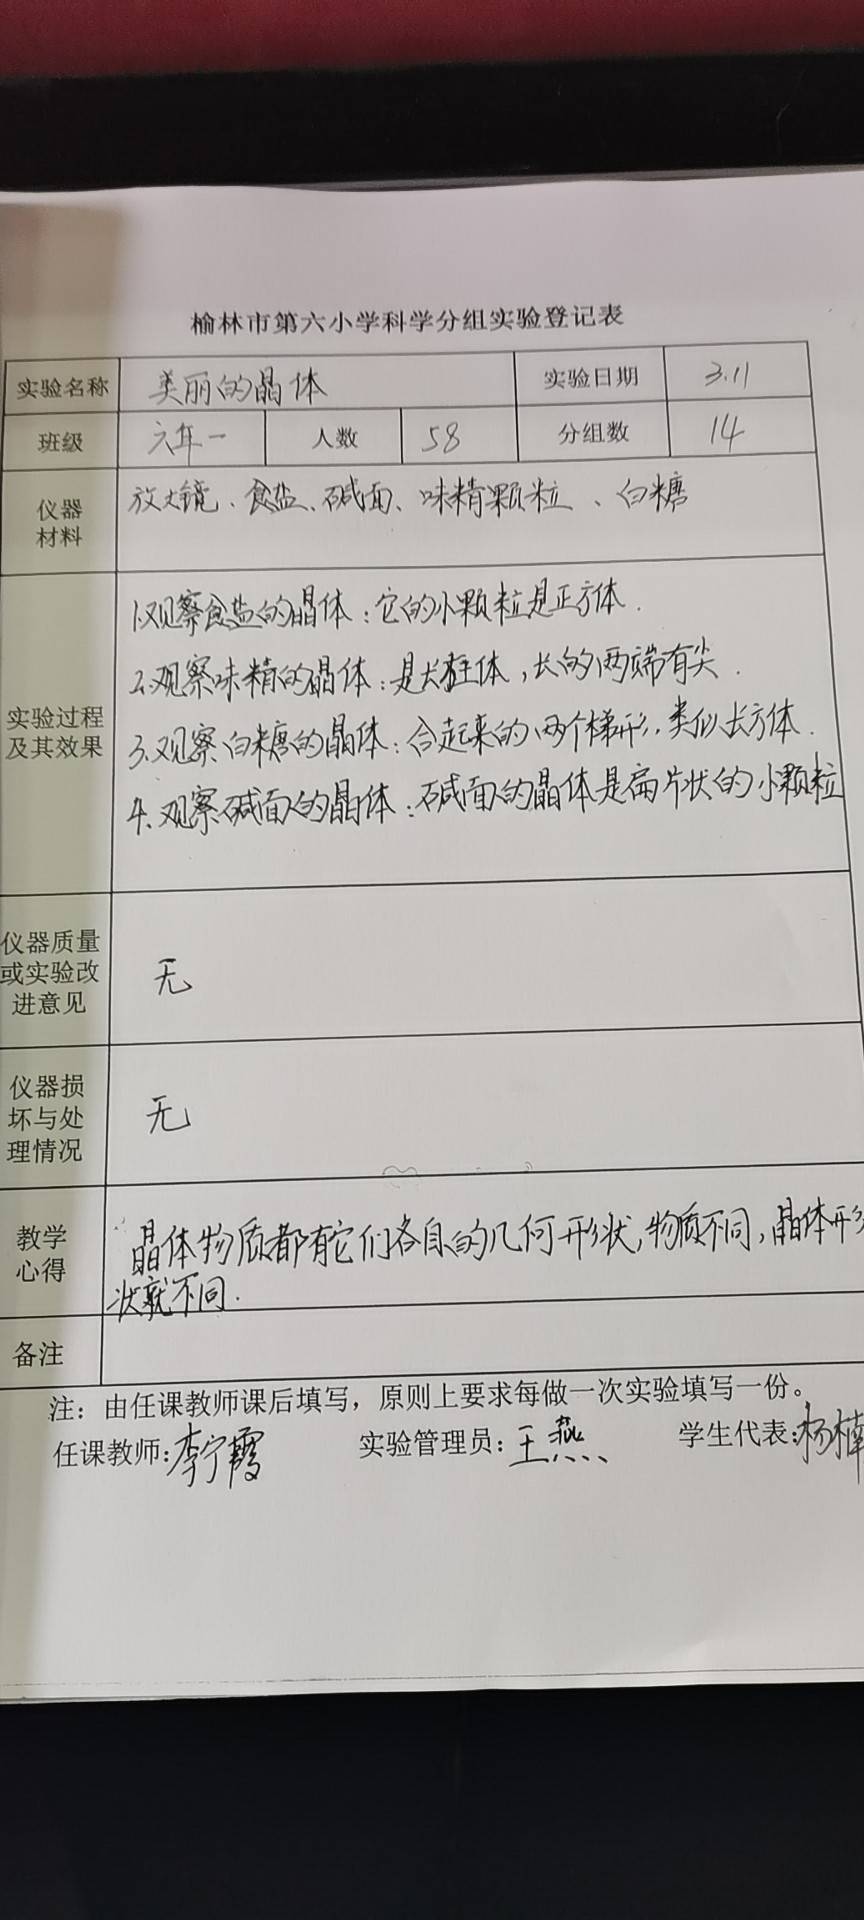 榆林市第六小学科学分组实验登记表
实验名称 美丽的晶体 实验日期 3.11
班级 六年一 人数 58 分组数 14
仪器
材料
放大镜、食盐、碱面、味精颗粒、白糖
实验过程
及其效果
1.观察食盐的晶体:它的小颗粒是正方体.
2.观察味精的晶体:是长柱体,长的两端有尖.
3.观察白糖的晶体:合起来的两个梯形,类似长方体.
4.观察碱面的晶体:碱面的晶体是扁片状的小颗粒
仪器质量
或实验改
进意见
无
仪器损
坏与处
理情况
无
教学
心得
晶体物质都有它们各自的几何形状,物质不同,晶体形
状就不同.
备注
注:由任课教师课后填写,原则上要求每做一次实验填写一份。
任课教师:李宁霞 实验管理员:王燕 学生代表:杨楠